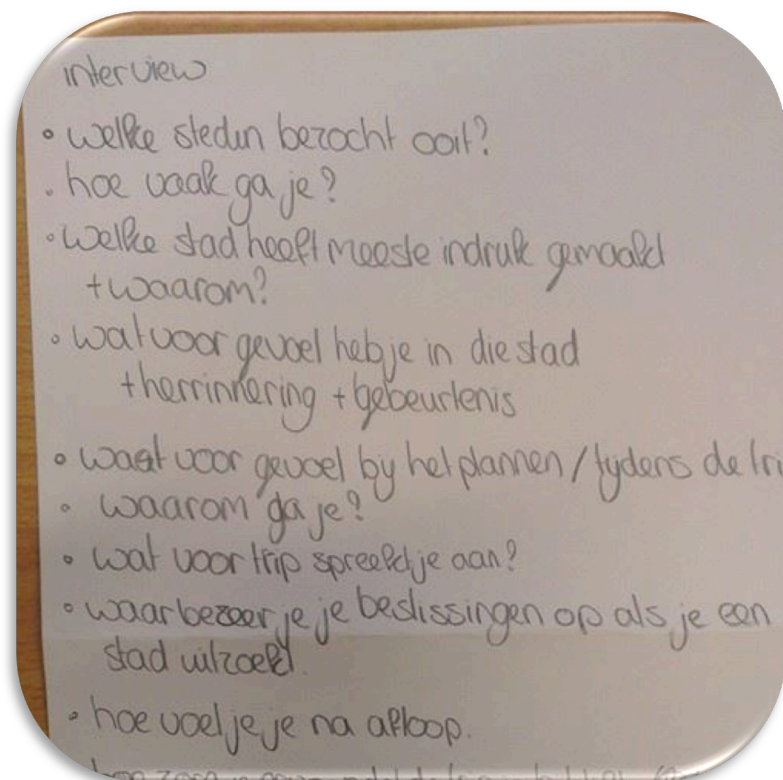 interview
• welke steden bezocht ooit?
• hoe vaak ga je?
• welke stad heeft meeste indruk gemaakt
+ waarom?
• wat voor gevoel heb je in die stad
+ herrinnering + gebeurtenis
• waat voor gevoel by het plannen / tydens de tri
• waarom ga je?
• wat voor trip spreekt je aan?
• waar bezeer je je beslissingen op als je een
stad uitzoekt.
• hoe voel je je na afloop.